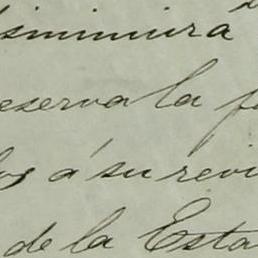 disminuirá
reserva la f
los á su revi
de la Esta